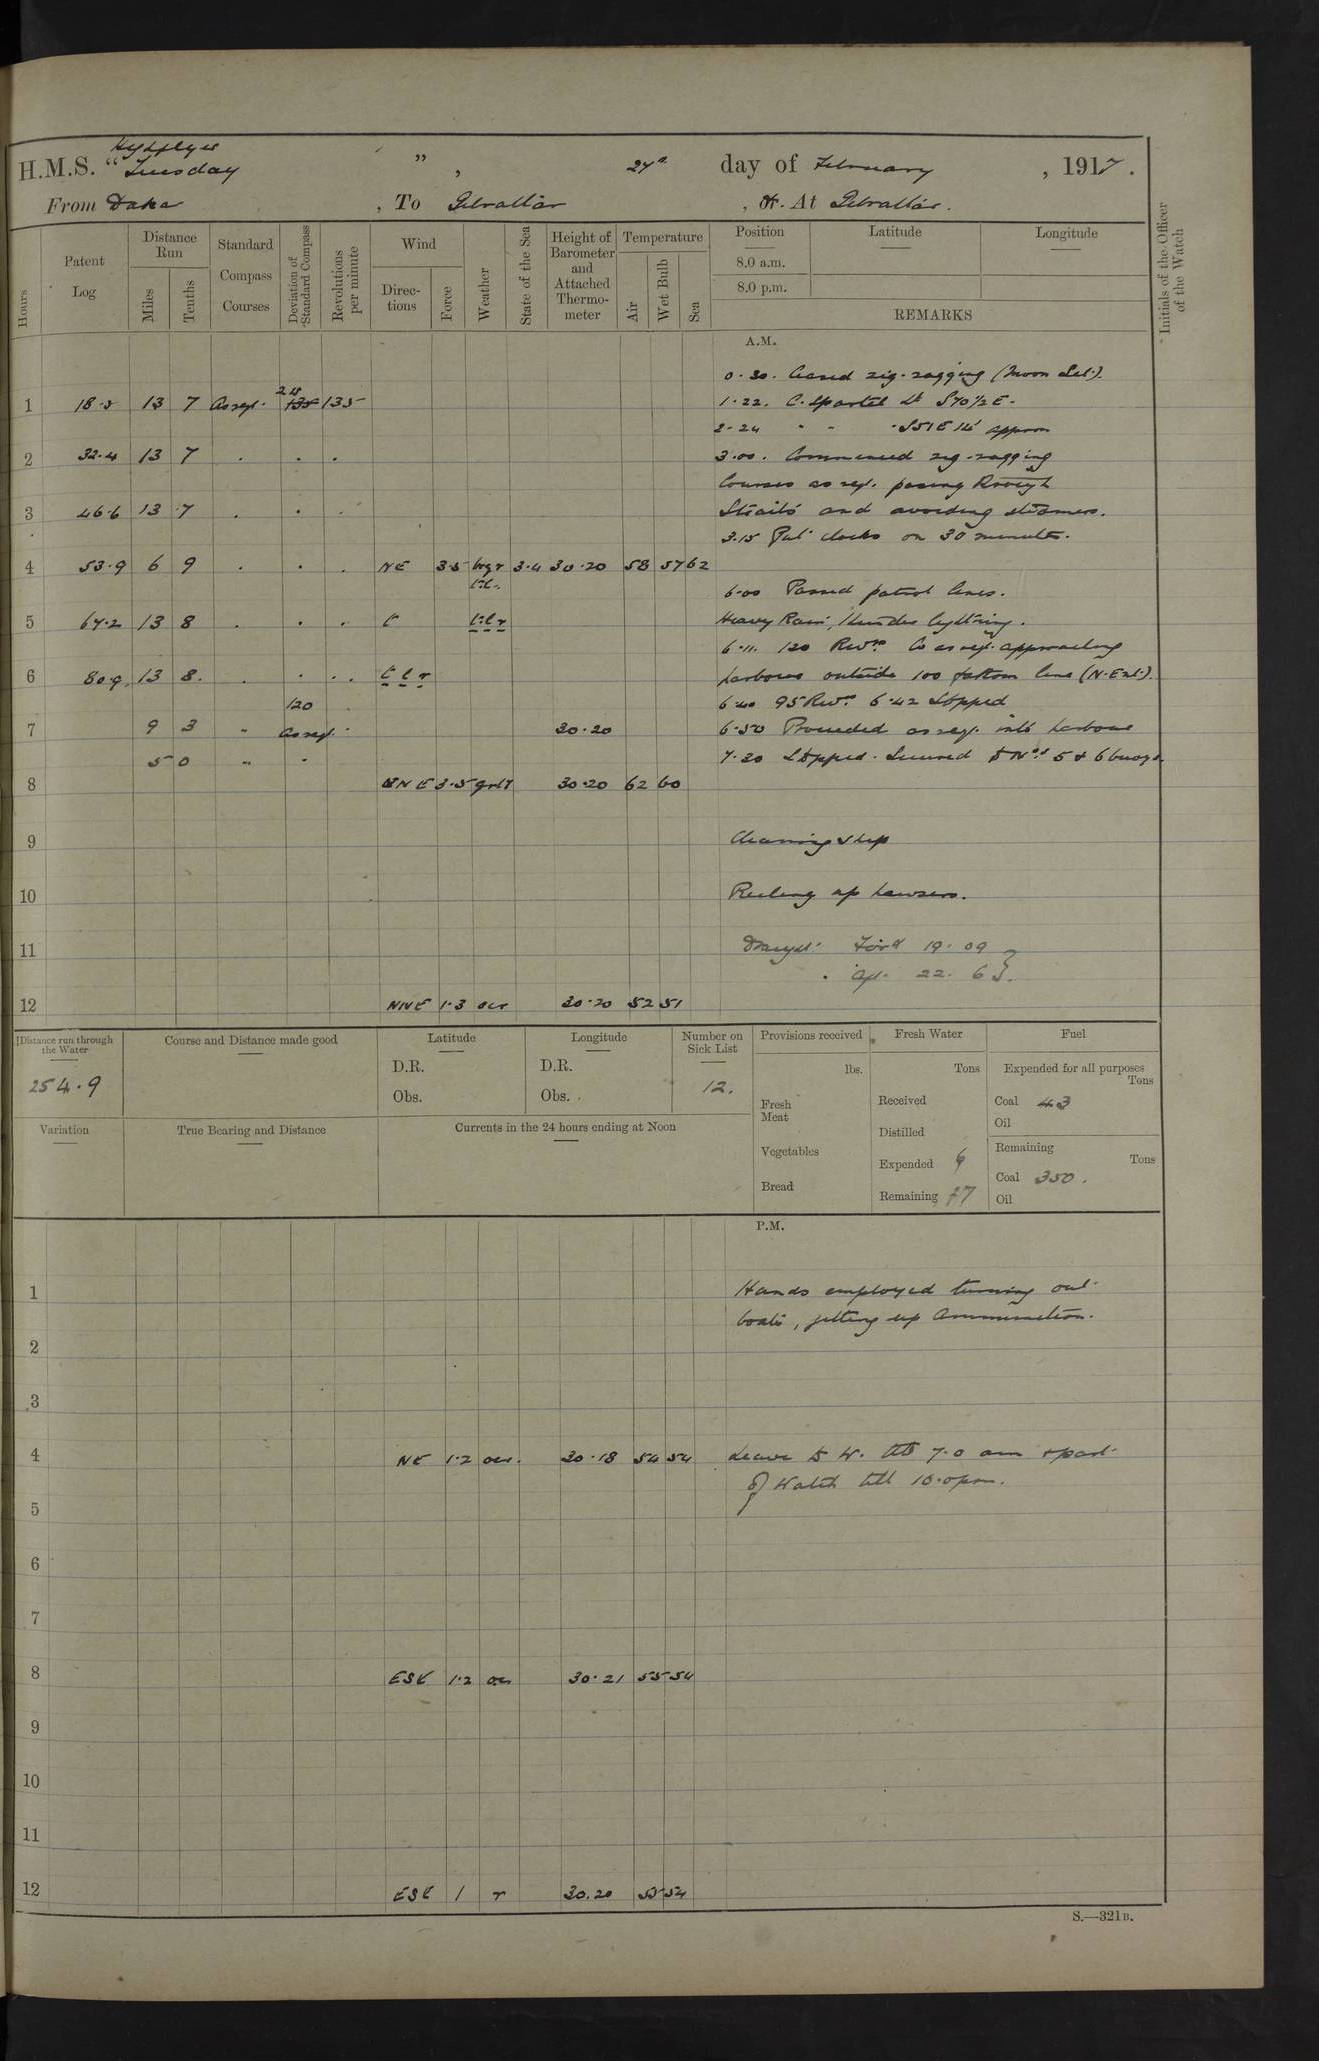 H.M.S. " Tuesday " , 27th day of February , 1917.
From Daka , To Gibraltar , or At Gibraltar.
Hours
Patent Log
Distance Run
Miles
Tenths
Standard Compass Courses
Deviation of Standard Compass
Revolutions per minute
Wind
Directions
Force
Weather
State of the Sea
Height of Barometer and Attached Thermometer
Temperature
Air
Wet Bulb
Sea
Position
8.0 a.m.
8.0 p.m.
Latitude
Longitude
REMARKS
Initials of the Officer of the Watch
A.M.
0.30. Ceased zig-zagging (Moon Set).
1 18.5 13 7 As req. 135 135 1.22. C. Spartel Lt S70½E.
2.24 " " S51E 14' approx
2 32.4 13 7 . . . 3.00. Commenced zig-zagging
Courses as req. passing through
3 46.6 13 7 . . . Straits and avoiding steamers.
3.15 Put clocks on 30 minutes.
4 53.9 6 9 . . . NE 3.5 3.4 30.20 58 57 62
6.00 Passed patrol lines.
5 67.2 13 8 . . . Heavy Rain, thunder lightning.
6.11. 120 Revns. Co as req. approaching
6 80.9 13 8 . . . harbour outside 100 fathom line (N. Ent.).
120 6.40 95 Revns. 6.42 Stopped
7 9 3 " As req. 30.20 6.50 Proceeded as req. into harbour
5 0 " . 7.20 Stopped. Secured to Nos 5 & 6 buoys
8 ENE 3.5 30.20 62 60
9 Cleaning ship
10 Reeling up hawsers.
11 Draught Ford 19.09
Aft. 22. 6
12 NNE 1.3 ocr 30.20 52 51
Distance run through the Water
254.9
Course and Distance made good
Latitude
D.R.
Obs.
Longitude
D.R.
Obs.
Number on Sick List
12.
Provisions received
lbs.
Fresh Meat
Vegetables
Bread
Fresh Water
Tons
Received
Distilled
Expended 6
Remaining 77
Fuel
Expended for all purposes
Tons
Coal 43
Oil
Remaining
Tons
Coal 350.
Oil
Variation
True Bearing and Distance
Currents in the 24 hours ending at Noon
P.M.
1 Hands employed turning out
boats, getting up Ammunition.
2
3
4 NE 1.2 ocr. 30.18 54 54 Leave to W. till 7.0 am & part
of Watch till 10.0 pm.
5
6
7
8 ESE 1.2 30.21 55 54
9
10
11
12 ESE 1 r 30.20 55 54
S.—321B.